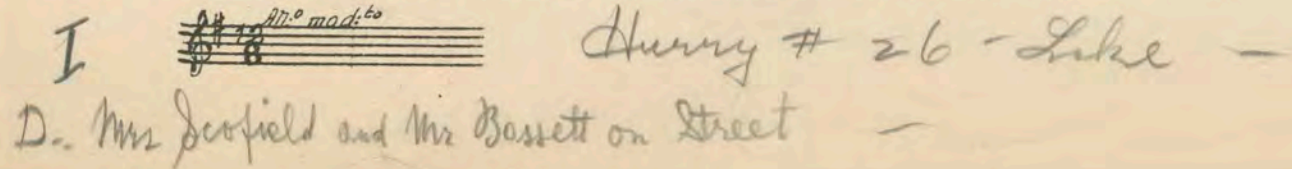 I 12 8 An.º mod:to Hurry # 26 - Lake -
D.. Mrs Scofield and Mr Bassett on Street -